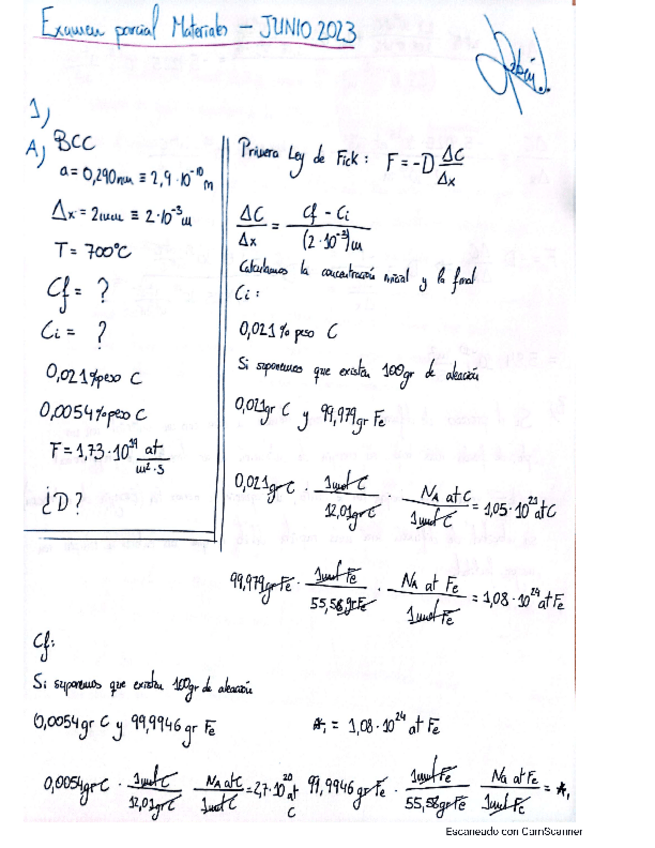 Examen parcial Materiales - JUNIO 2023
1)
A) BCC
a = 0,290nm ≡ 2,9·10⁻¹⁰m
Δx = 2mm ≡ 2·10⁻³m
T = 700°C
Cf = ?
Ci = ?
0,021%peso C
0,0054%peso C
F = 1,73·10¹⁹ at/m²·s
¿D?
Primera Ley de Fick: F = -D ΔC/Δx
ΔC/Δx = Cf - Ci/(2·10⁻³)m
Calculamos la concentración inicial y la final
Ci:
0,021% peso C
Si suponemos que existen 100gr de aleación
0,021gr C y 99,979gr Fe
0,021gr C · 1mol C/12,01gr C · NA at C/1mol C = 1,05·10²¹ at C
99,979gr Fe · 1mol Fe/55,58gr Fe · NA at Fe/1mol Fe = 1,08·10²⁴ at Fe
Cf:
Si suponemos que existen 100gr de aleación
0,0054gr C y 99,9946 gr Fe
*₁ = 1,08·10²⁴ at Fe
0,0054gr C · 1mol C/12,01gr C NA at C/1mol C = 2,7·10²⁰ at C 99,9946gr Fe · 1mol Fe/55,58gr Fe NA at Fe/1mol Fe = *₁
Escaneado con CamScanner